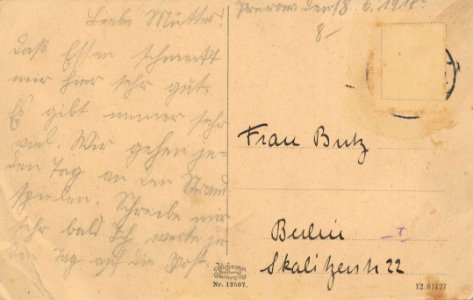 Liebe Mutter!
Daß Essen schmeckt
mir hier sehr gut.
Es gibt immer sehr
viel. Wir gehen je-
den Tag an den Strand
spielen. Schreibe mir
sehr bald Ich warte je
den Tag auf die Post.
Prerow den 18. 6. 1918.
8-
Frau Butz
Berlin
Skalitzerstr 22
Nr. 12507.
12 83127